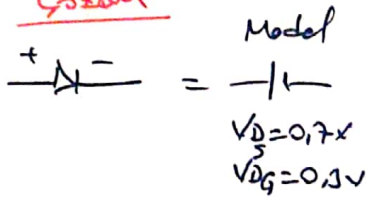 Model
+ - =
VD_S=0,7v
VD_G=0,3v